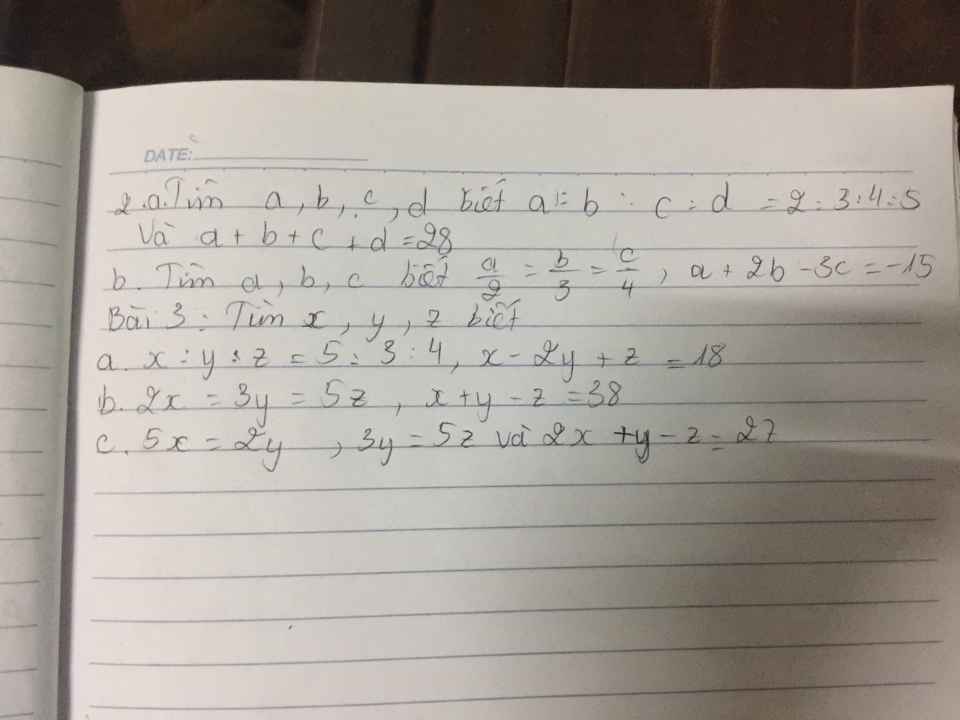 DATE:
2.a. Tìm a, b, c, d biết a : b : c : d = 2 : 3 : 4 : 5
Và a + b + c + d = 28
b. Tìm a, b, c biết a/2 = b/3 = c/4, a + 2b - 3c = -15
Bài 3 : Tìm x, y, z biết
a. x : y : z = 5 : 3 : 4, x - 2y + z = 18
b. 2x = 3y = 5z, x + y - z = 38
c. 5x = 2y, 3y = 5z và 2x + y - z = 27